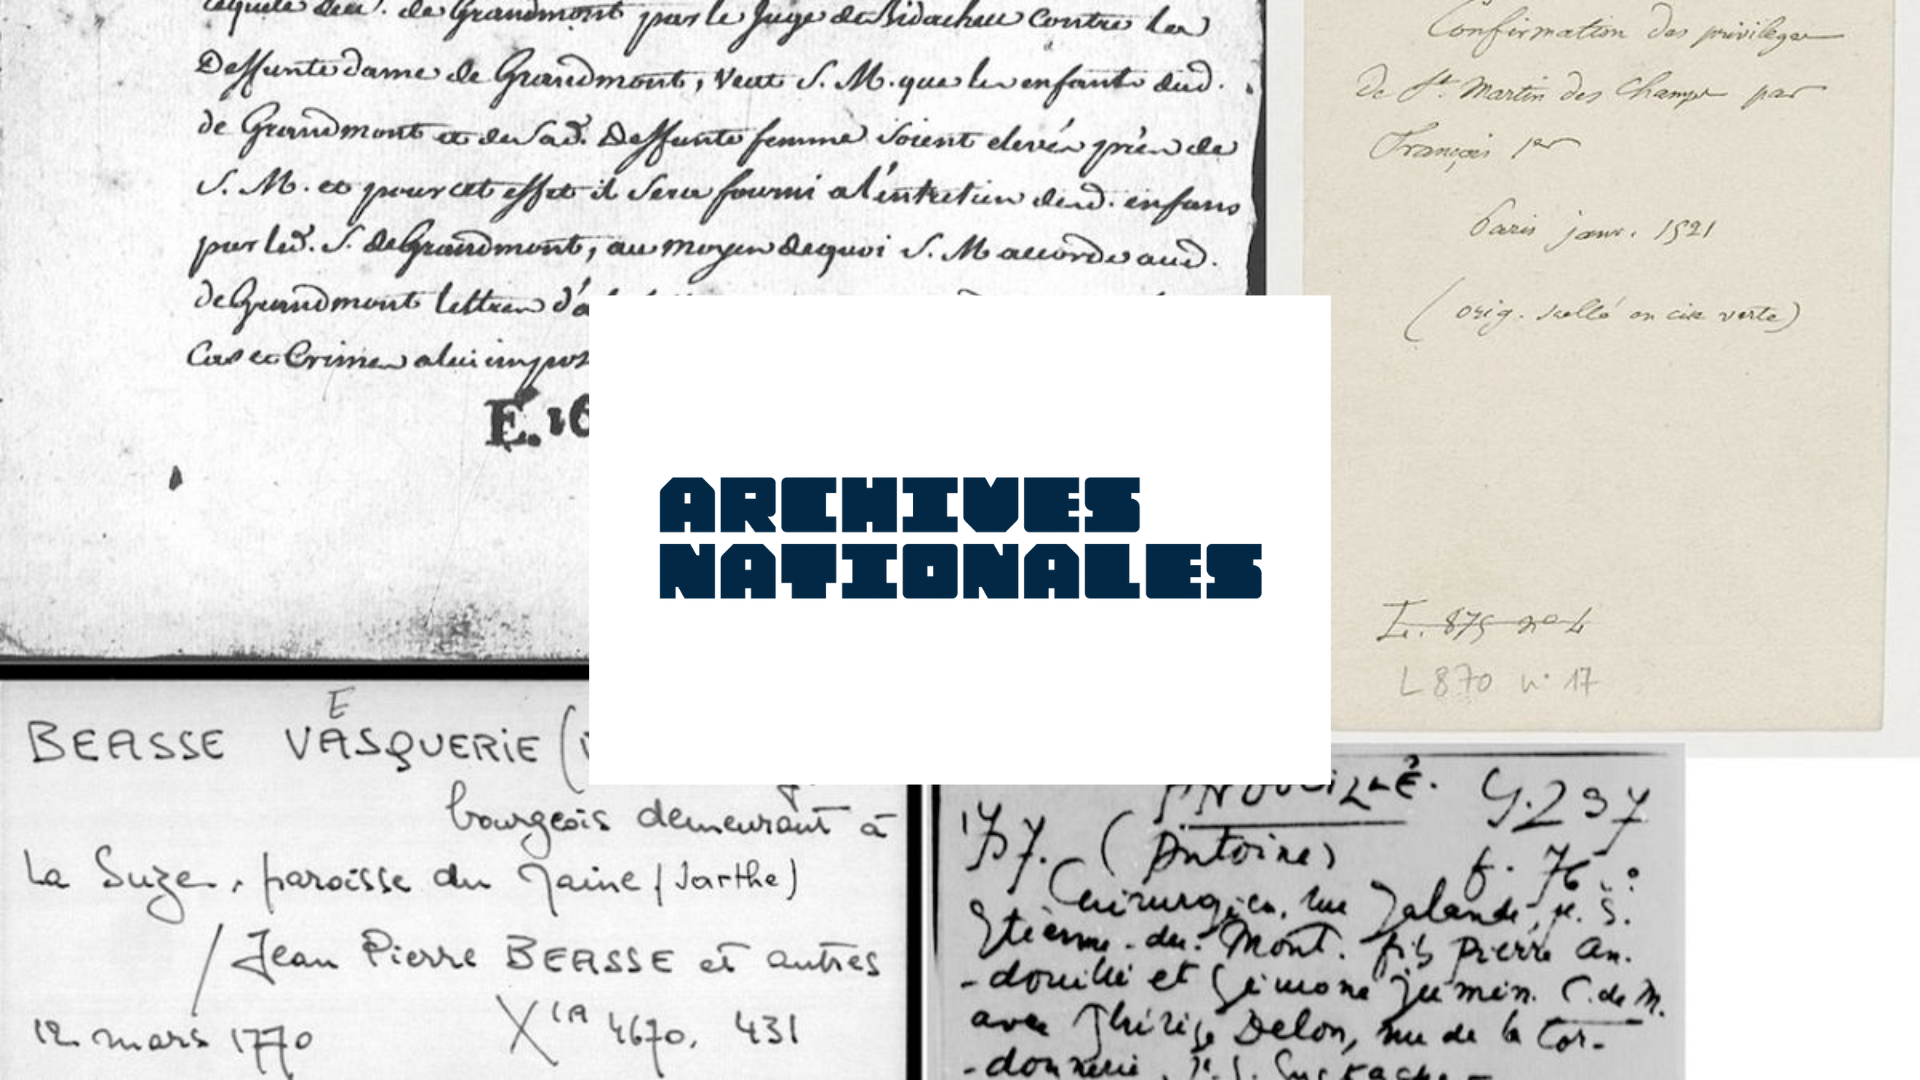 laquelle dud. de Grandmont par le Juge de Bidachau contre la
Deffunte dame de Grandmont, veut S. M. que les enfants dud.
de Grandmont et de lad. Deffunte femme soient elevés près de
S. M. et pour cet effet il sera fourni a l'entretien desd. enfans
par led. S. de Grandmont, au moyen dequoi S. M. accorde aud.
de Grandmont lettres d'a
Cas et Crimes a lui impos
E. 16
Confirmation des privilèges
de St. Martin des Champs par
François 1er
Paris janv. 1521
(orig. scellé en cire verte)
L. 875 n° 4
L 870 n° 17
ARCHIVES
NATIONALES
E
BEASSE VASQUERIE (
bourgeois demeurant à
La Suze, paroisse du Maine (Sarthe)
/ Jean Pierre BEASSE et autres
12 mars 1770 X1A 4670, 431
Y. 237
1757. (Antoine) f. 76 v°
Chirurgien, rue Galande, p. S.
Etienne-du-Mont. fils Pierre An-
-douillé et Simone Jumin. C. de M.
avec Thérèse Delon, rue de la Cor-
-donnerie, P. S. Eustache -